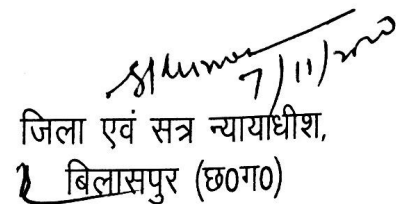 7/11/2020
जिला एवं सत्र न्यायाधीश,
बिलासपुर (छ0ग0)